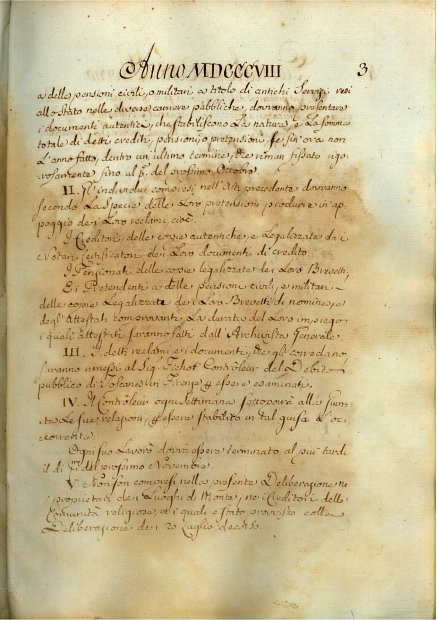 Anno MDCCCVIII 3
a delle pensioni civili, o militari a titolo di antichi Servigi resi
allo Stato nelle diverse camere pubbliche, dovranno presentare
i documenti autentici, che stabiliscono La natura, e La somma
totale di detti crediti, pensioni, o pretensioni, se fin' ora non
L'anno fatto, dentro un ultimo termine, che riman fissato rigo-
rosamente sino al p.º del prossimo Ottobre.
II. Gl'individui compresi nell'Art. precedente dovranno
secondo La Specie delle Loro pretensioni produrre in ap-
poggio dei Loro reclami, cioè.
I Creditori delle copie autentiche, e Legalizzate dai
Notari certificatori dei Loro documenti di credito
I Pensionati delle copie legalizzate dei Loro Brevetti,
E i Pretendenti a delle pensioni civili, e militari
delle copie Legalizzate dei Loro Brevetti di nomine, e
degl'Attestati comprovanti La durata del Loro impiego
i quali attestati saranno fatti dall'Archivista Generale.
III. I detti reclami, e i documenti, che gli corredano
saranno rimessi al Sig. Controleur del Debito
pubblico di Toscana in Firenze per essere esaminati.
IV. Il Controleur ogni Settimana sottoporrà alla Giun-
ta Le sue relazioni, per essere stabilito in tal guisa L'oc-
corrente.
Ogni suo Lavoro dovrà essere terminato al più tardi
il dì p.º del prossimo Novembre.
V. Non son compresi nella presente Deliberazione ne
i proprietari dei Luoghi di Monte, ne i Creditori delle
Comunità religiose, ai quali è stato provvisto colla
Deliberazione dei 20 Luglio decorso.